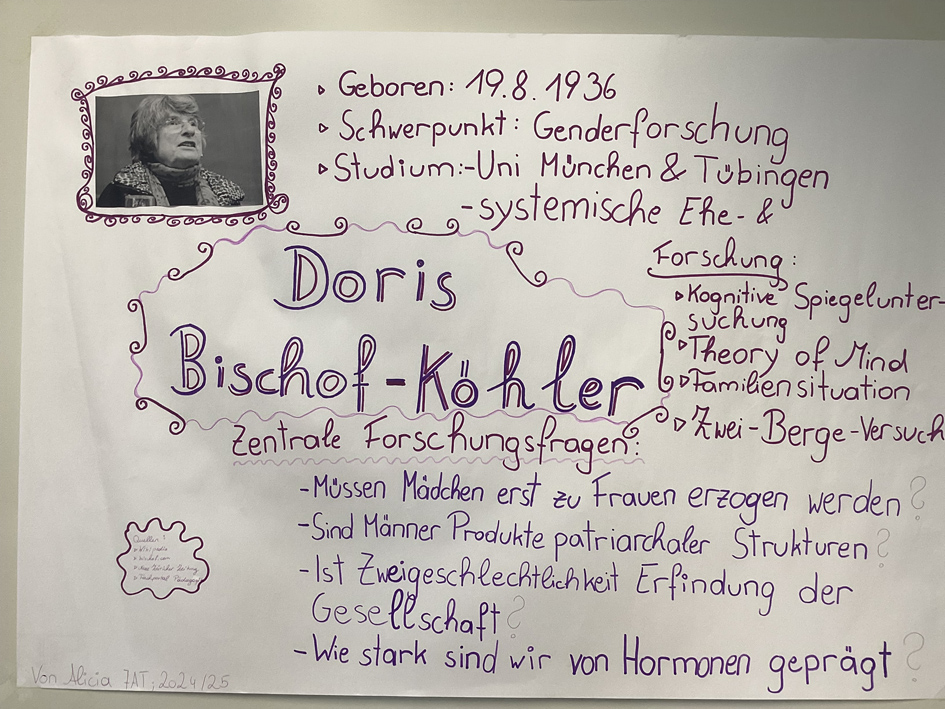 ▹ Geboren: 19.8.1936
▹ Schwerpunkt: Genderforschung
▹ Studium:-Uni München & Tübingen
-systemische Ehe- &
Doris
Bischof-Köhler
Forschung:
▹ Kognitive Spiegelunter-
suchung
▹ Theory of Mind
▹ Familiensituation
▹ Zwei-Berge-Versuch
Zentrale Forschungsfragen:
-Müssen Mädchen erst zu Frauen erzogen werden?
-Sind Männer Produkte patriarchaler Strukturen?
-Ist Zweigeschlechtlichkeit Erfindung der
Gesellschaft?
-Wie stark sind wir von Hormonen geprägt?
Quellen:
▹ Wikipedia
▹ Neue Zürcher Zeitung
Von Alicia 7AT, 2024/25